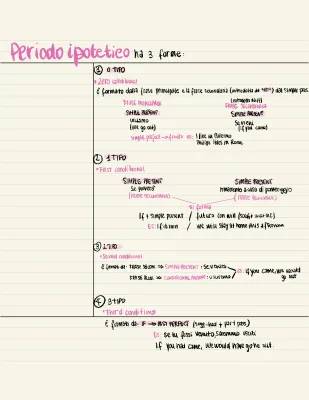 Periodo ipotetico ha 3 forme:
① 0 TIPO
• ZERO conditional
È formato dalla frase principale e la frase secondaria (introdotta da "if") del simple pres
FRASE PRINCIPALE
SIMPLE PRESENT
Usciamo
(we go out)
FRASE SECONDARIA
SIMPLE PRESENT
Se vieni
(if you came)
simple present → infinito es: I live in Palermo
② 1 TIPO
• First conditional
SIMPLE PRESENT
Se piovesse
(FRASE SECONDARIA)
SIMPLE PRESENT
(FRASE PRINCIPALE)
Si forma
If + simple present / futuro con will
ES: If it rain / we will stay at home this afternoon
③ 2 TIPO
• Second conditional
È formato da: FRASE SECOND → SIMPLE PRESENT: se venissi
FRASE PRINC → CONDITIONAL PRESENT: usciremmo
ES: if you came, we would go out
④ 3 TIPO
• Third conditional
È formato da: IF → PAST PERFECT (sogg + had + part. pass)
ES: Se tu fossi venuto, saremmo usciti
If you had came, we would have gone out.